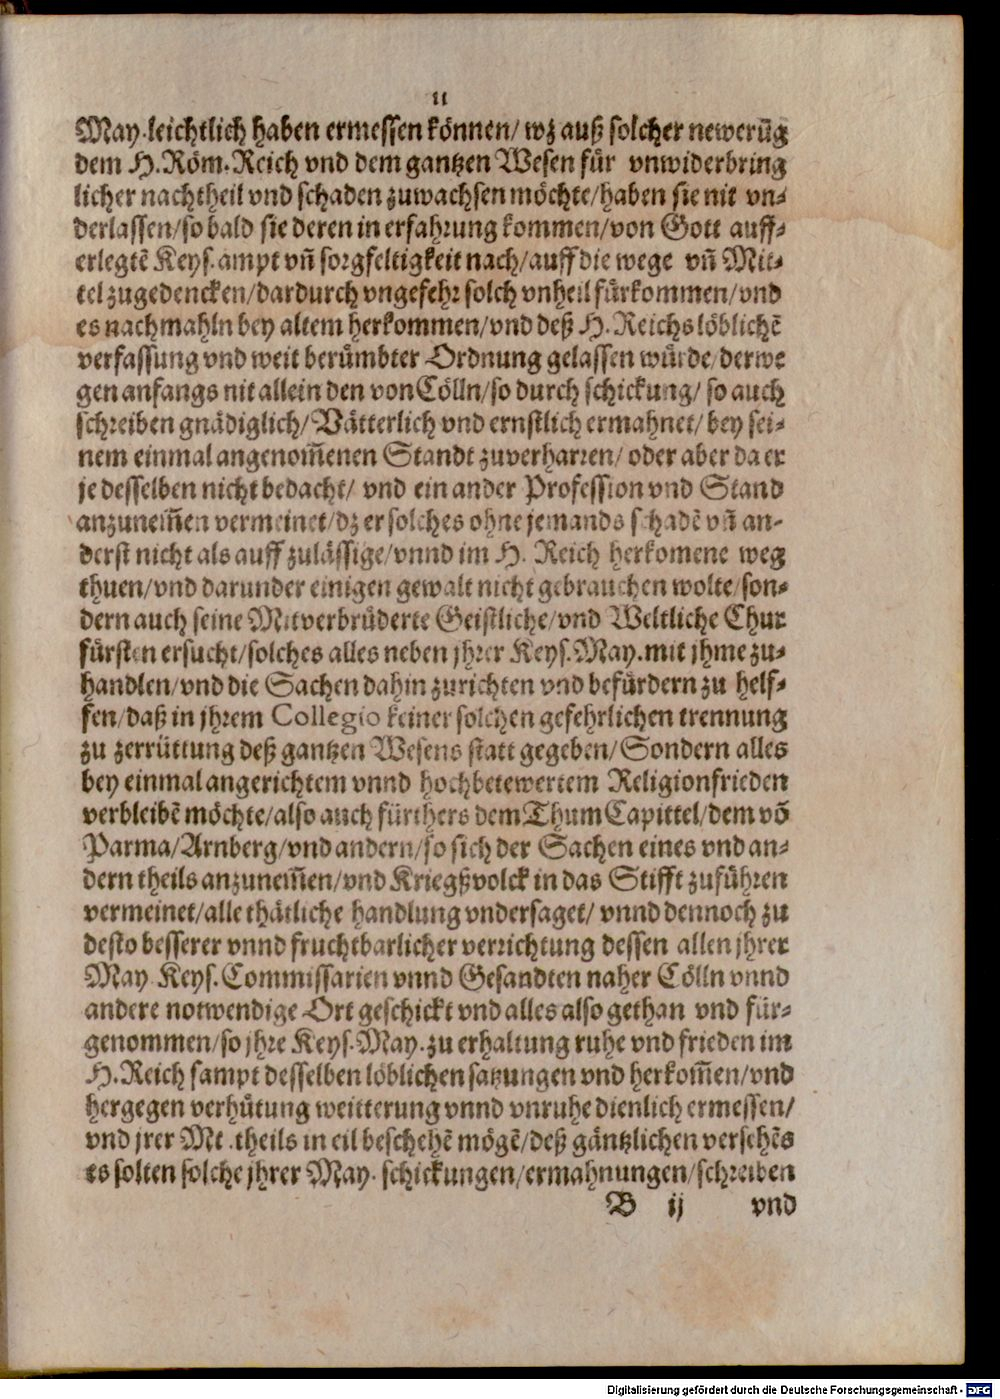 11
May. leichtlich haben ermessen können/ wz auß solcher newerūg
dem H. Röm. Reich vnd dem gantzen Wesen für vnwiderbring
licher nachtheil vnd schaden zuwachsen möchte/ haben sie nit vn-
derlassen/ so bald sie deren in erfahrung kommen/ von Gott auff-
erlegtē Keys. ampt vñ sorgfeltigkeit nach/ auff die wege vñ Mit-
tel zugedencken/ dardurch vngefehr solch vnheil fürkommen/ vnd
es nachmahln bey altem herkommen/ vnd deß H. Reichs löblichē
verfassung vnd weit berümbter Ordnung gelassen würde/ derwe
gen anfangs nit allein den von Cölln/ so durch schickung/ so auch
schreiben gnädiglich/ Vätterlich vnd ernstlich ermahnet/ bey sei-
nem einmal angenom̄enen Standt zuverharren/ oder aber da er
je desselben nicht bedacht/ vnd ein ander Profession vnd Stand
anzunem̄en vermeinet/ dz er solches ohne jemands schadē vñ an-
derst nicht als auff zulässige/ vnnd im H. Reich herkomene weg
thuen/ vnd darunder einigen gewalt nicht gebrauchen wolte/ son-
dern auch seine Mitverbrüderte Geistliche/ vnd Weltliche Chur
fürsten ersucht/ solches alles neben jhrer Keys. May. mit jhme zu-
handlen/ vnd die Sachen dahin zurichten vnd befürdern zu helf-
fen/ daß in jhrem Collegio keiner solchen gefehrlichen trennung
zu zerrüttung deß gantzen Wesens statt gegeben/ Sondern alles
bey einmal angerichtem vnnd hochbetewertem Religionfrieden
verbleibē möchte/ also auch fürthers dem Thum Capittel/ dem vō
Parma/ Arnberg/ vnd andern/ so sich der Sachen eines vnd an-
dern theils anzunem̄en/ vnd Kriegßvolck in das Stifft zuführen
vermeinet/ alle thätliche handlung vndersaget/ vnnd dennoch zu
desto besserer vnnd fruchtbarlicher verrichtung dessen allen jhrer
May. Keys. Commissarien vnnd Gesandten naher Cölln vnnd
andere notwendige Ort geschickt vnd alles also gethan vnd für-
genommen/ so jhre Keys. May. zu erhaltung ruhe vnd frieden im
H. Reich sampt desselben löblichen satzungen vnd herkom̄en/ vnd
hergegen verhütung weitterung vnnd vnruhe dienlich ermessen/
vnd jrer Mt. theils in eil beschehē mögē/ deß gäntzlichen versehēs
es solten solche jhrer May. schickungen/ ermahnungen/ schreiben
B ij vnd
Digitalisierung gefördert durch die Deutsche Forschungsgemeinschaft - DFG